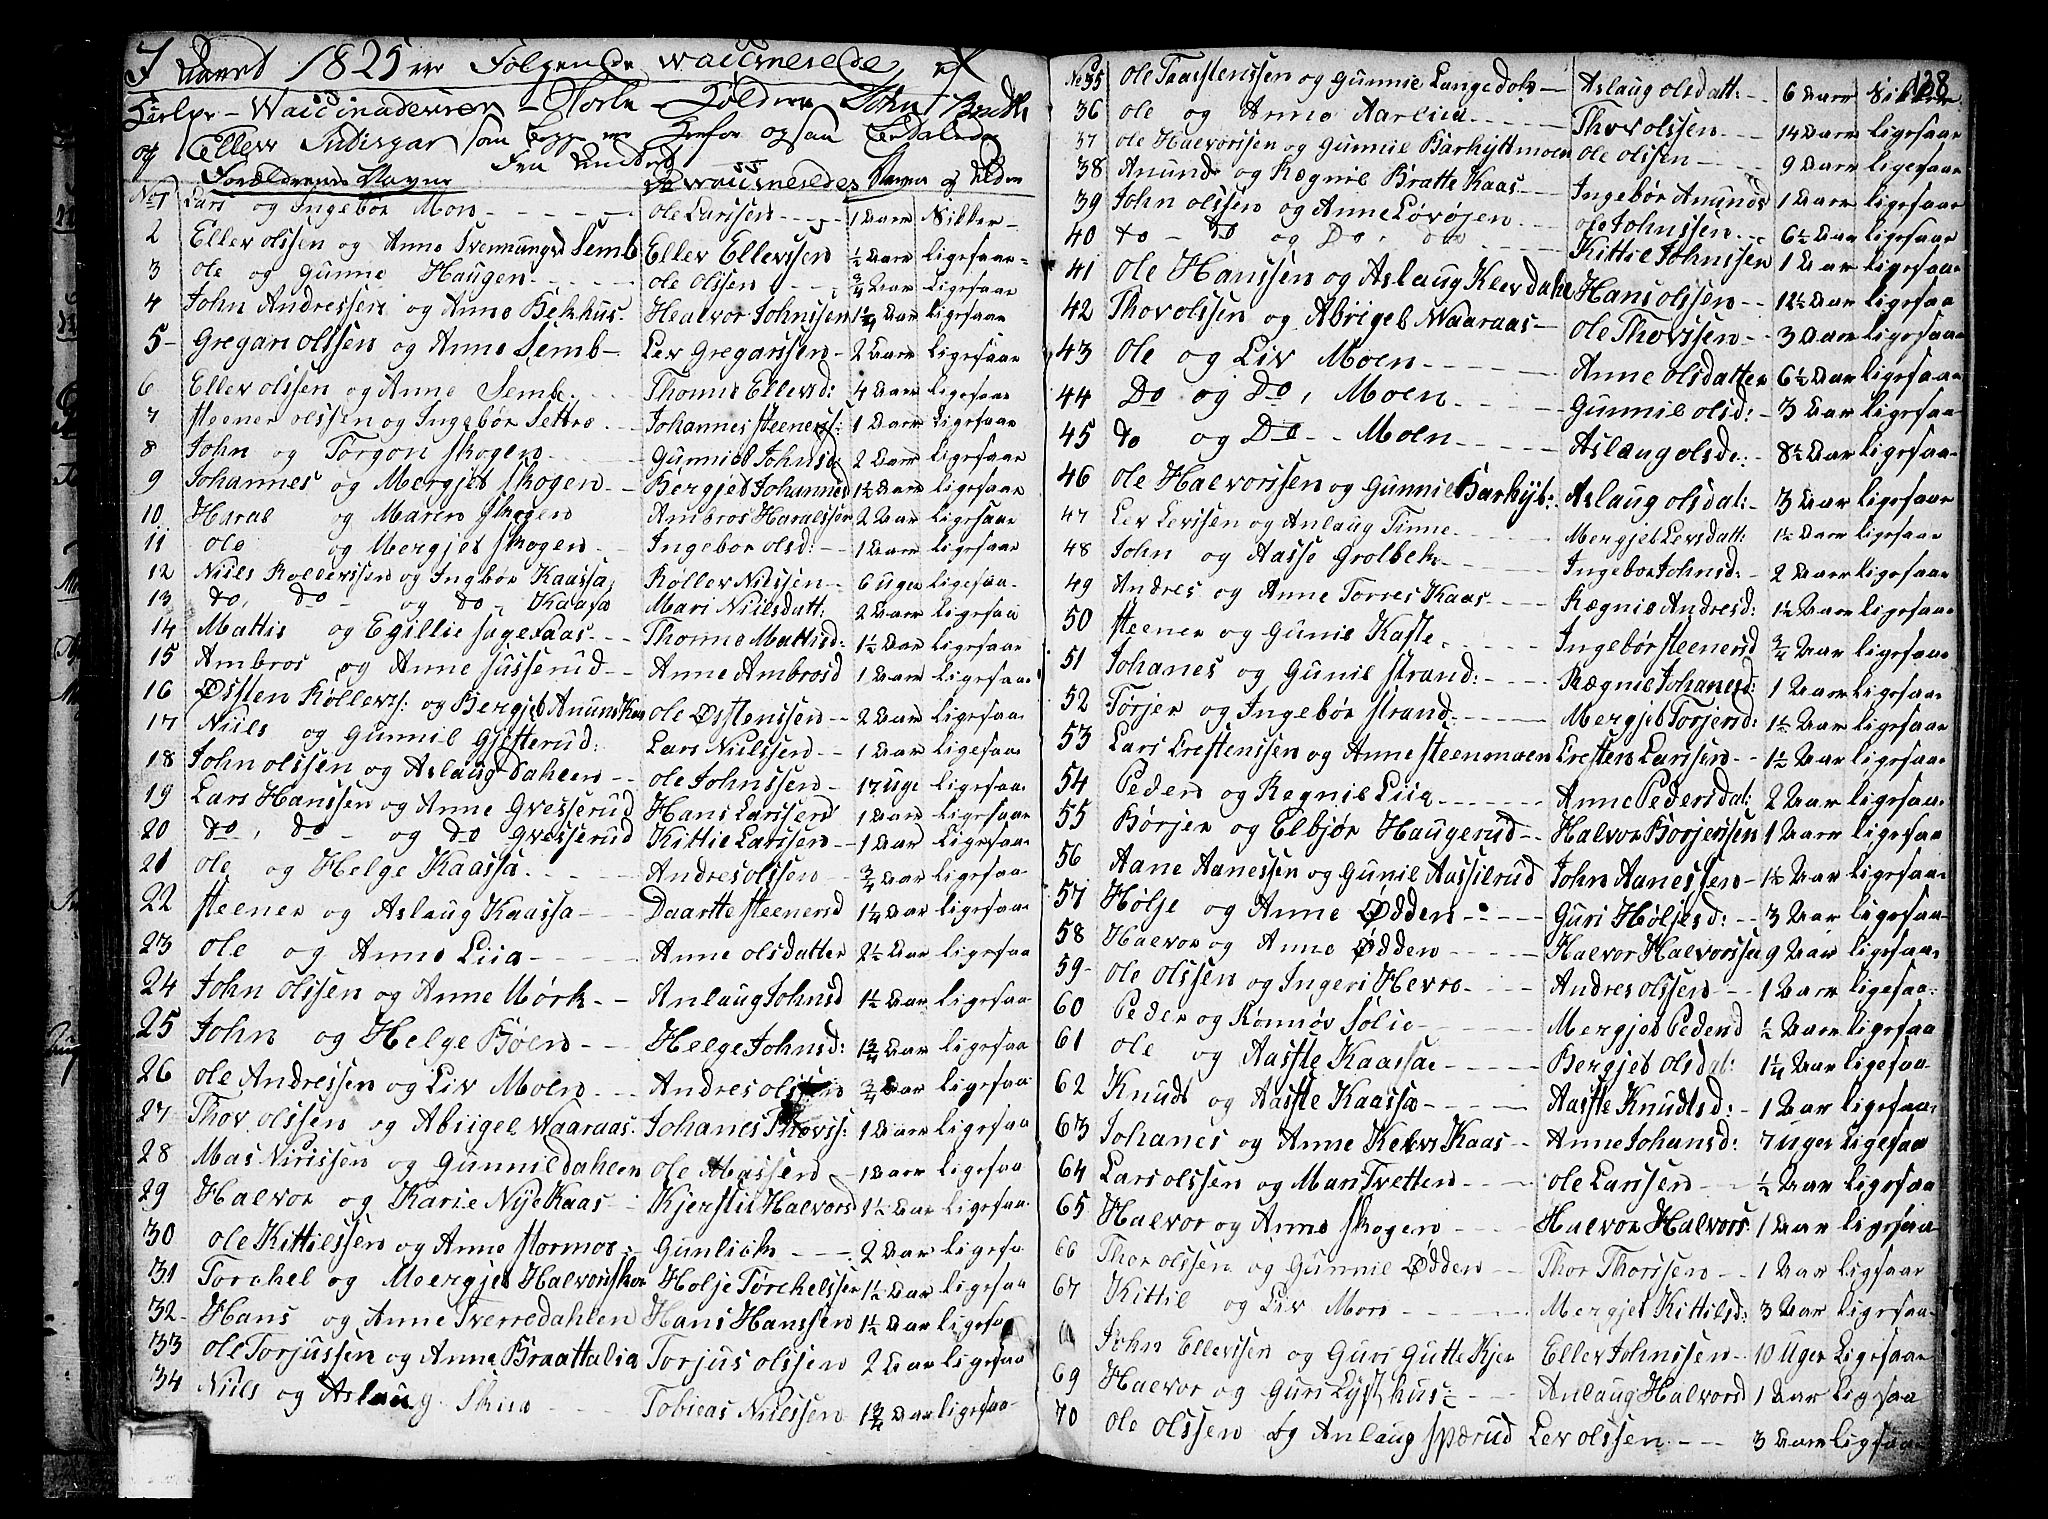 I Aaret 1825 er Følgende Waccinerede af
Hielpe-Waccinadeurer
og Ellev som og saa
Fra
Forældrenes Navne De Waccineredes Navne og Alder
No 1 Lars og Ingebor Mon - - - Ole Larssen - - - 1 Aar Sikker -
2 Ellev Olssen og Anne Svennungsd Semb Ellev Ellevssen ½ Aar Ligesaa -
3 Ole og Gunne Haugen - - - Ole Olssen - - ¾ Aar Ligesaa
4 John Andressen og Anne Bekhus. Healvor Johnssen 1¼ Aar Ligesaa
5 - Gregar Olssen og Anne Semb - Lev Gregarssen - 2 Aar Ligesaa
6 Ellev Olssen og Anne Semb - - Thonne Ellevsd: - 4 Aar Ligesaa
7 Steener Olssen og Ingebør Settre - - Johannes Steenerss: 1 Aar Ligesaa
8 John og Torgon Skogen - - - Gunniel Johnsd: 2 Aar Ligesaa
9 Johannes og Mergjet Skogen - - Bergjet Johannesd 1½ Aar Ligesaa
10 Haral og Maren Skogen Ambros Haralssen 2 Aar Ligesaa
11 Ole og Mergjet Skogen - - Ingebor Olsd: - 1 Aar Ligesaa
12 Niels Rollevssen og Ingbør Kaassa, Røllev Nielssen - 6 Uger Ligesaa -
13 do, do - og do - Kaasa Mari Nielsdatt: 2 Aar Ligesaa
14 Mattis og Egillie Sagekaas - - Thonne Mattisd: 1½ Aar Ligesaa
15 Ambros og Anne Susserud - - Anne Ambrosd 1 Aar Ligesaa
16 Østen Røllevs: og Bergjet Anuns Kaas Ole Østenssen - 2 Aar Ligesaa -
17 Niels og Gunnil Gjesterud: Lars Nielssen - - 1 Aar Ligesaa
18 John Olssen og Aslaug Dahlen - - Ole Johnssen - - 17 Uge Ligesaa
19 Lars Hanssen og Anne Gvesserud Hans Larssen 1 Aar Ligesaa
20 do, do - og do Gvesserud Kittil Larssen - - 1 Aar Ligesaa
21 Ole og Helge Kaassa - - - Andres Olssen - - ¾ Aar Ligesaa
22 Steener og Aslaug Kaassa - - - Daartte Steenersd 1¼ Aar Ligesaa
23 Ole og Anne Liia - - - - Anne Olsdatter 2½ Aar Ligesaa
24 John Olssen og Anne Mørk - - Anlaug Johnsd 1½ Aar Ligesaa -
25 John og Helge Bøen - - Helge Johnsd: 1¾ Aar Ligesaa
26 Ole Andressen og Liv Moen - - Andres Olssen ¾ Aar Ligesaa
27 Thov Olssen og Abiigel Waaraas. Johanes Thovss: 1 Aar Ligesaa
28 Mas Nirissen og Gunnil Dahlen Ole Massen - - 1 Aar Ligesaa
29 Halvor og Karie Nye Kaas - Kjerstil Halvorsd 1½ Aar Ligesaa
30 Ole Kittilssen og Anne Stormoe - Gunlich - - - 2 Aar Ligesaa
31 Torchel og Mergjet Halvorskaas Holje Torchelssen 1½ Aar Ligesaa
32 - Hans og Anne Tverredahlen Hans Hanssen 1½ Aar Ligesaa
33 Ole Torjussen og Anne Braattalia Torjus Olssen 2 Aar Ligesaa
34 Niels og Aslaug Skiin - - - Tobieas Nielssen 1¾ Aar Ligesaa -
128
No 35 Ole Taarstenssen og Gunnil Langedok - Aslaug Olsdatt: - 6 Aar Sikker
36 Ole og Anne Aarliia - - - - Thov Olssen - - - 14 Aar Ligesaa
37 Ole Halvorssen og Gunnil Barhyttmoen Ole Olssen - - - 9 Aar Ligesaa
38 Anund og Regnil Bratte Kaas - - Ingebør Anundsd 1 Aar Ligesaa
39 John Olssen og Anne Løvøjen - - - Ole Johnssen - - - 6½ Aar Ligesaa
40 do - do og Do, do - - - Kittil Johnssen 1 Aar Ligesaa
41 Ole Hanssen og Aslaug Klevdahl Hans Olssen - - 12½ Aar Ligesaa
42 Thov Olssen og Abrigel Waaraas - Ole Thovssen - - 3 Aar Ligesaa
43 Ole og Liv Moen - - - - Anne Olsdatter 6½ Aar Ligesaa
44 Do og Do, Moen - - - Gunnil Olsd: - 3 Aar Ligesaa
45 do og Do - - Moen - - - Aslaug Olsd: - 8½ Aar Ligesaa
46 Ole Halvorssen og Gunnil Barhyt: Aslaug Olsdal: - 3 Aar Ligesaa
47 Lev Levssen og Anlaug Tinne - - - Mergjet Levsdatt: 1½ Aar Ligesaa
48 John og Aasse Grolbek - - - Ingebor Johnsd: - 2 Aar Ligesaa
49 Andres og Anne Torres Kaas - - - Rægnil Andresd: 1½ Aar Ligesaa
50 Steener og Gunil Kaste - - - Ingebør Steenersd ¾ Aar Ligesaa
51 Johanes og Gunil Strand: - - - Rægnil Johanesd: 1 Aar Ligesaa
52 Tørjer og Ingebør Strand: - - - Mergjet Torjersd: 1½ Aar Ligesaa
53 Lars Crestenssen og Anne Steenmoen Cresten Larssen - - 1½ Aar Ligesaa
54 Peder og Regnil Liia - - - - Anne Pedersdal: 2 Aar Ligesaa
55 Børjer og Elbjør Haugerud - - Halvor Borjerssen 1 Aar Ligesaa
56 Aane Aanessen og Gunil Aassilrud John Aanessen - 1½ Aar Ligesaa
57 Hølje og Anne Ødden - - - Guri Høljesd: - - 3 Aar Ligesaa
58 Halvor og Anne Ødden - - - Halvor Halvorssen 9 Aar Ligesaa
59 - Ole Olssen og Ingeri Hevre - - - Andres Olssen - - 1 Aar Ligesaa:
60 Peder og Rønnøv Solie - - - Mergjet Pedersd ½ Aar Ligesaa
61 Ole og Aastte Kaassa - - - Bergjet Olsdal: 1¼ Aar Ligesaa
62 Knudt og Aastte Kaassa - - - Aastte Knudtsd: - 1 Aar Ligesaa:
63 Johanes og Anne Kelvs Kaas - - Anne Johansd: 7 Uger Ligesaa
64 Lars Olssen og Mari Tvetten - - - Ole Larssen - - ½ Aar Ligesaa
65 Halvor og Anne Skogen - - - Halvor Halvors 1 Aar Ligesaa
66 Thor Olssen og Gunnil Ødden - - Thor Thorssen - - 1 Aar Ligesaa
67 Kittil og Liv Moen - - - Mergjet Kittilsd: 3 Aar Ligesaa
John Ellevssen og Guri Gutte Kjer Ellev Johnssen - 10 Uger Ligesaa
69 Halvor og Guri Lysthus: - - Anlaug Halvorsd 1 Aar Ligesaa
70 Ole Olssen og Anlaug Spærud Lev Olssen - - - 3 Aar Ligesaa